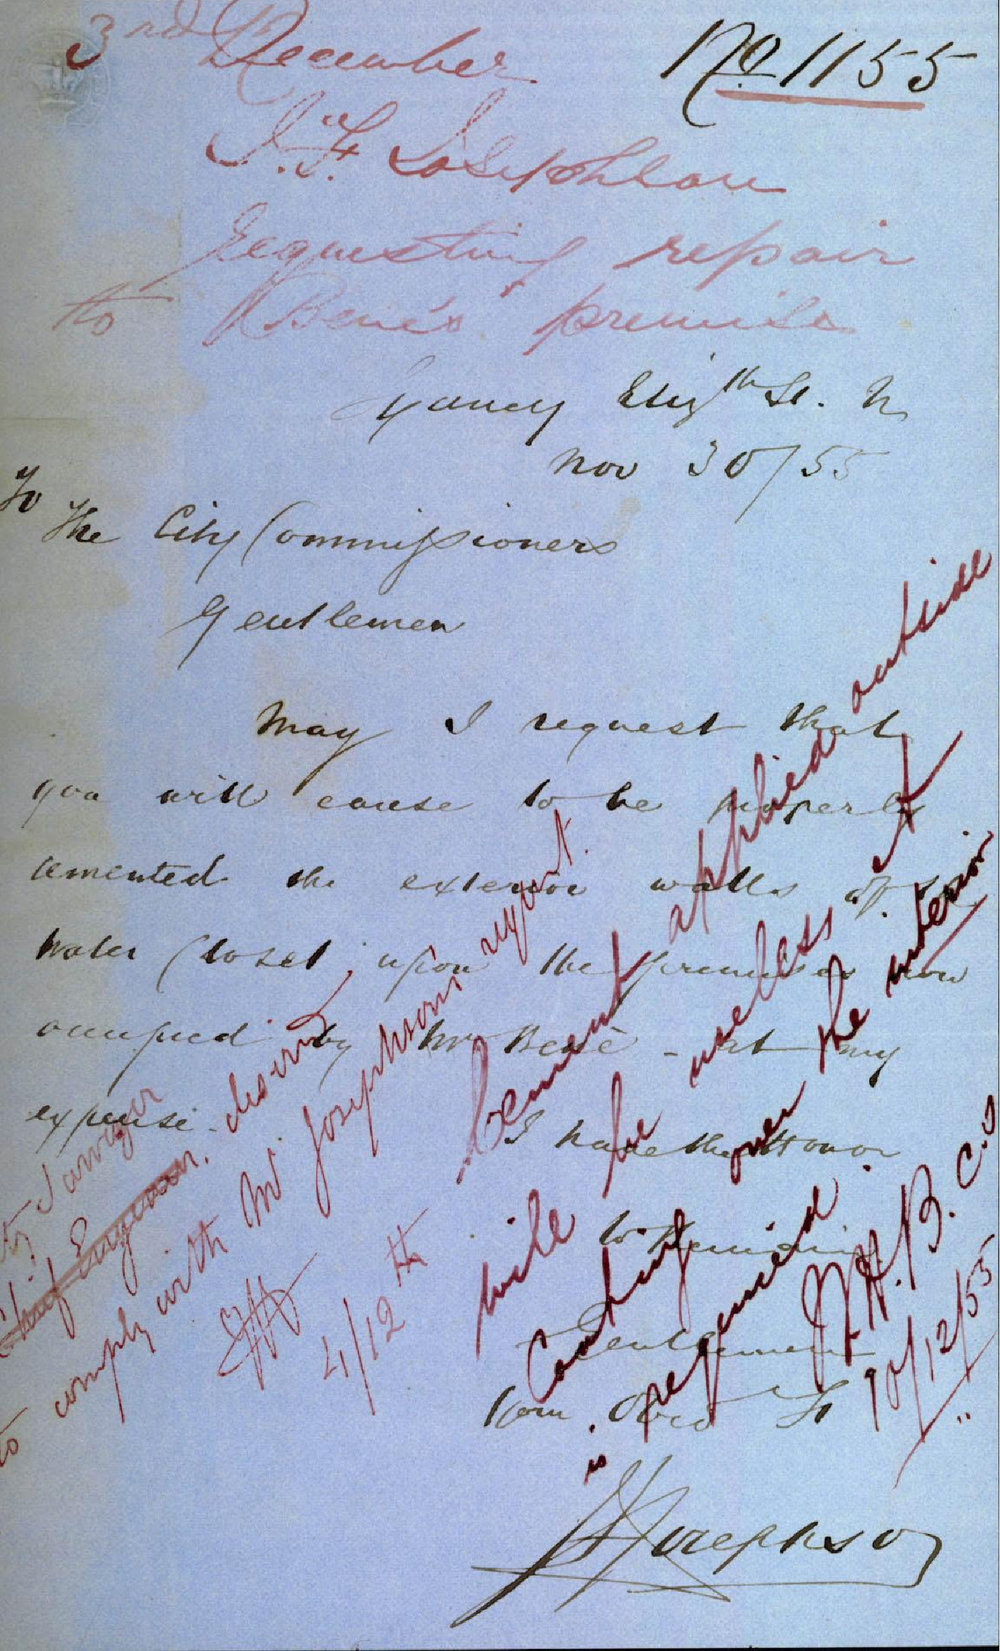 3rd December
No 1155
J. F. Josephson
requesting repair
to Bené's premises
Sydney Elizth St. N
Nov 30/55
To
The City Commissioners
Gentlemen
May I request that
you will cause to be properly
cemented the exterior walls of
Water Closet upon the premises now
occupied by Mr Bené - at my
expense.
I have the Honor
to Remain
Gentlemen
Your Obed St
J F Josephson
City Surveyor
Chief Engineer. desired
to comply with Mr Josephson's request.
4/12th
Cement applied outside
will be useless a
Coating over the interior
is required
J.H.B. C.S
10/12/55